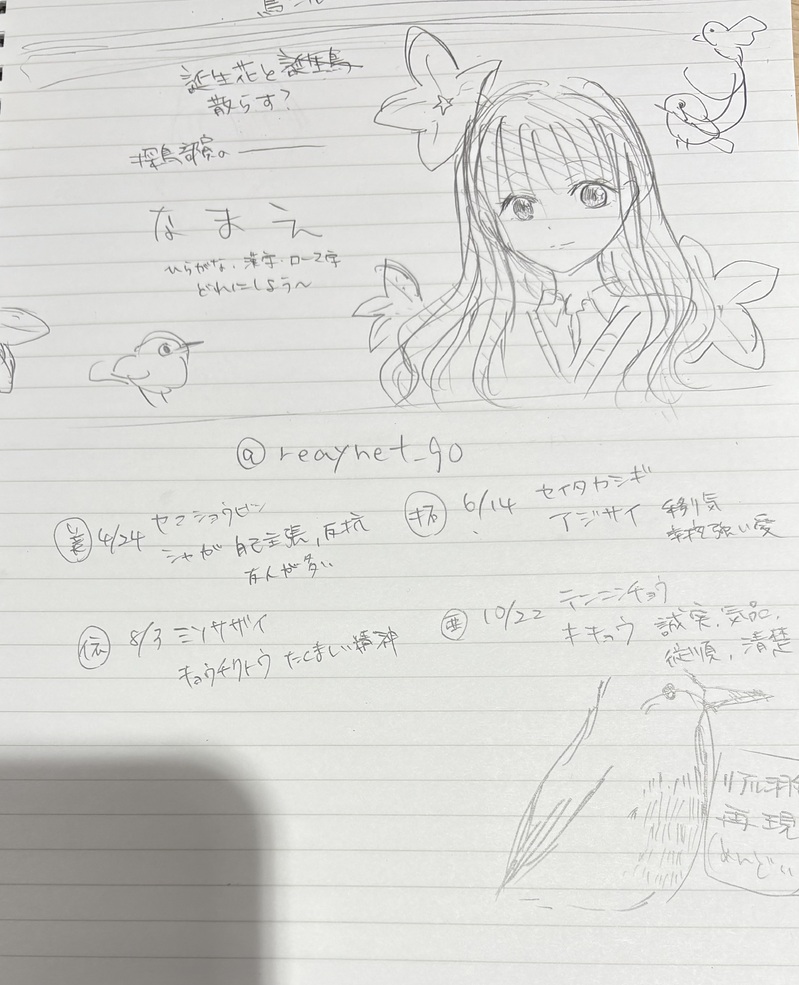 誕生花と誕生鳥
散らす?
探鳥部員の
なまえ
ひらがな・漢字・ローマ字
どれにしよう〜
@reaynet_go
美 4/24 ヤマショウビン
シャガ 自己主張,反抗
友人が多い
6/14 セイタカシギ
アジサイ 移り気
辛抱強い愛
依 8/3 ミソサザイ
キョウチクトウ たくましい精神
亜 10/22 テンニンチョウ
キキョウ 誠実,気品,
従順,清楚
リアル
再現
めんどい